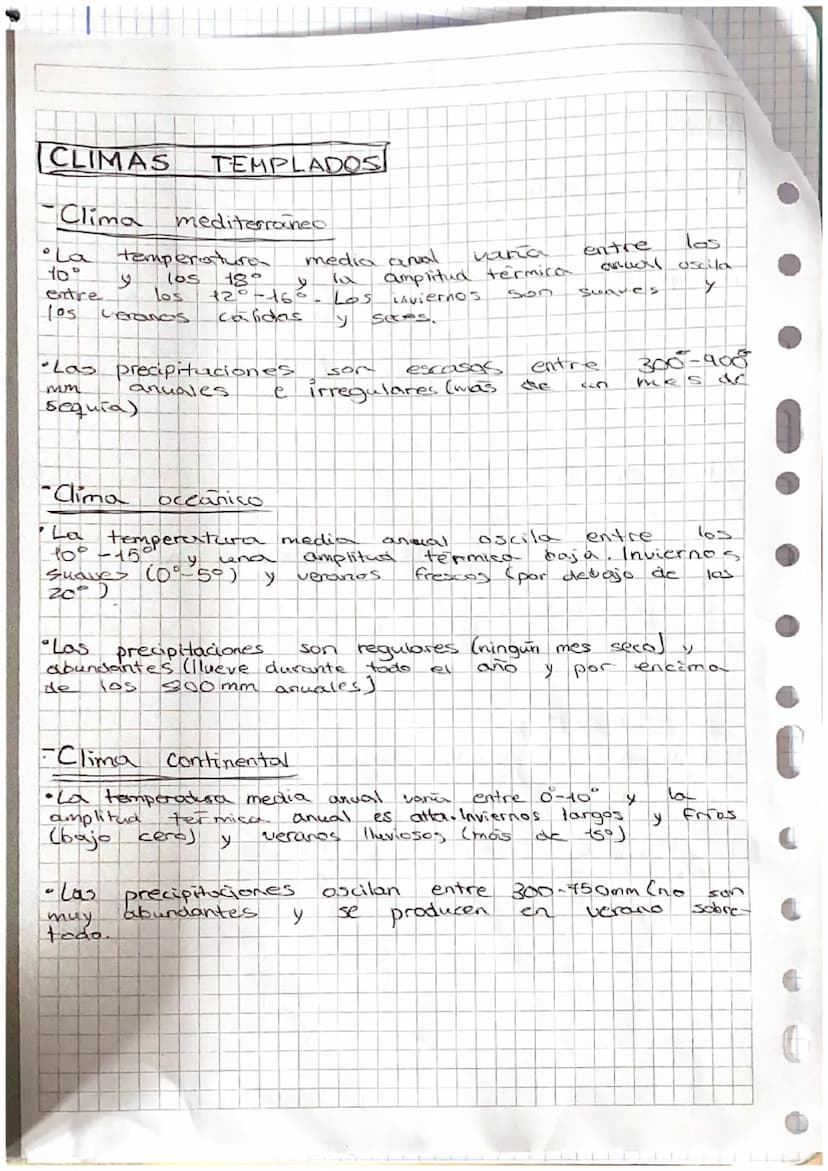 CLIMAS TEMPLADOS
- Clima mediterráneo
• La temperatura media anual varía entre los
10° y los 18° y la amplitud térmica anual oscila
entre los 12°-16°. Los inviernos son suaves y
los veranos cálidos y secos.
• Las precipitaciones son escasas entre 300-900
mm anuales e irregulares (más de un mes de
sequía)
- Clima oceánico
• La temperatura media anual oscila entre los
10°-15° y una amplitud térmica baja. Inviernos
suaves (0°-5°) y veranos frescos (por debajo de los
20°)
• Las precipitaciones son regulares (ningún mes seco) y
abundantes (llueve durante todo el año y por encima
de los 800mm anuales)
- Clima continental
• La temperatura media anual varía entre 0°-10° y la
amplitud térmica anual es alta. Inviernos largos y fríos
(bajo cero) y veranos lluviosos (más de 15°)
• Las precipitaciones oscilan entre 300-750mm (no son
muy abundantes y se producen en verano sobre-
todo.